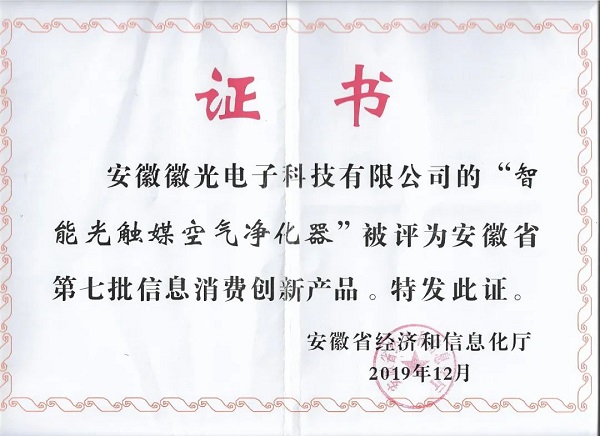 证书
安徽徽光电子科技有限公司的“智
能光触媒空气净化器”被评为安徽省
第七批信息消费创新产品。特发此证。
安徽省经济和信息化厅
2019年12月